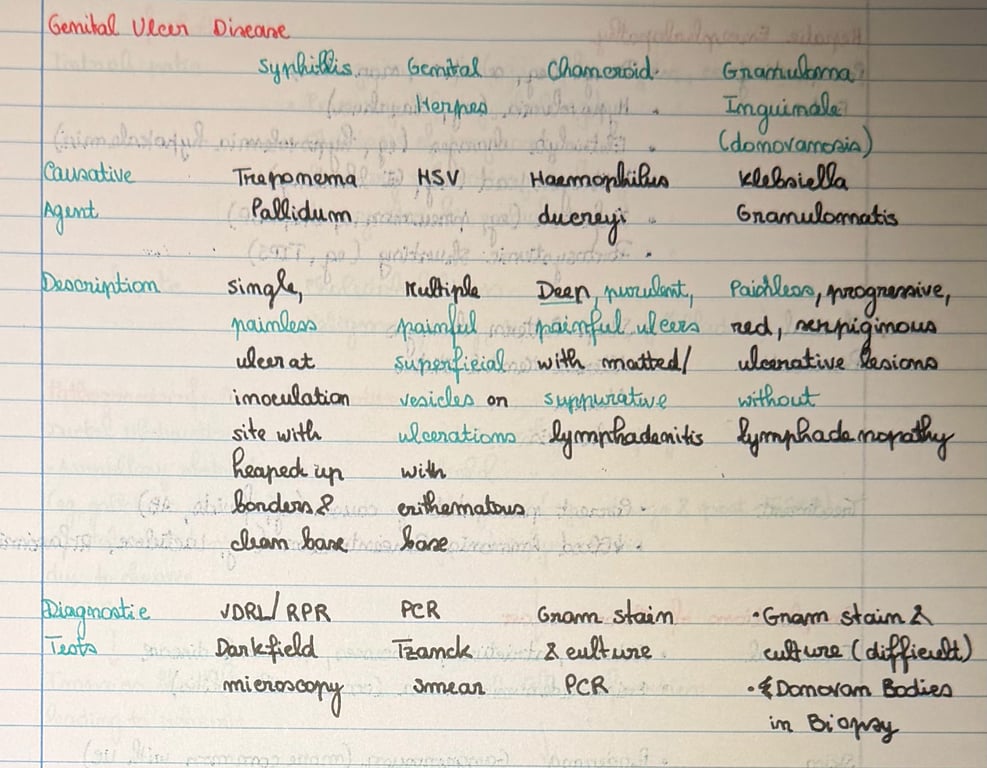 Genital Ulcer Disease
Syphillis Genital Chancroid Granuloma
Herpes Inguinale
(donovanosis)
Causative Treponema HSV Haemophilus Klebsiella
Agent Pallidum ducreyi Granulomatis
Description single, Multiple Deep, purulent, Painless, progressive,
painless painful painful ulcers red, serpiginous
ulcer at superficial with matted/ ulcerative lesions
inoculation vesicles or suppurative without
site with ulcerations lymphadenitis lymphadenopathy
heaped up with
borders & erithematous
clean base base
Diagnostic VDRL/RPR PCR Gram stain • Gram stain &
Tests Darkfield Tzanck & culture culture (difficult)
microscopy smear PCR • Donovan Bodies
in Biopsy